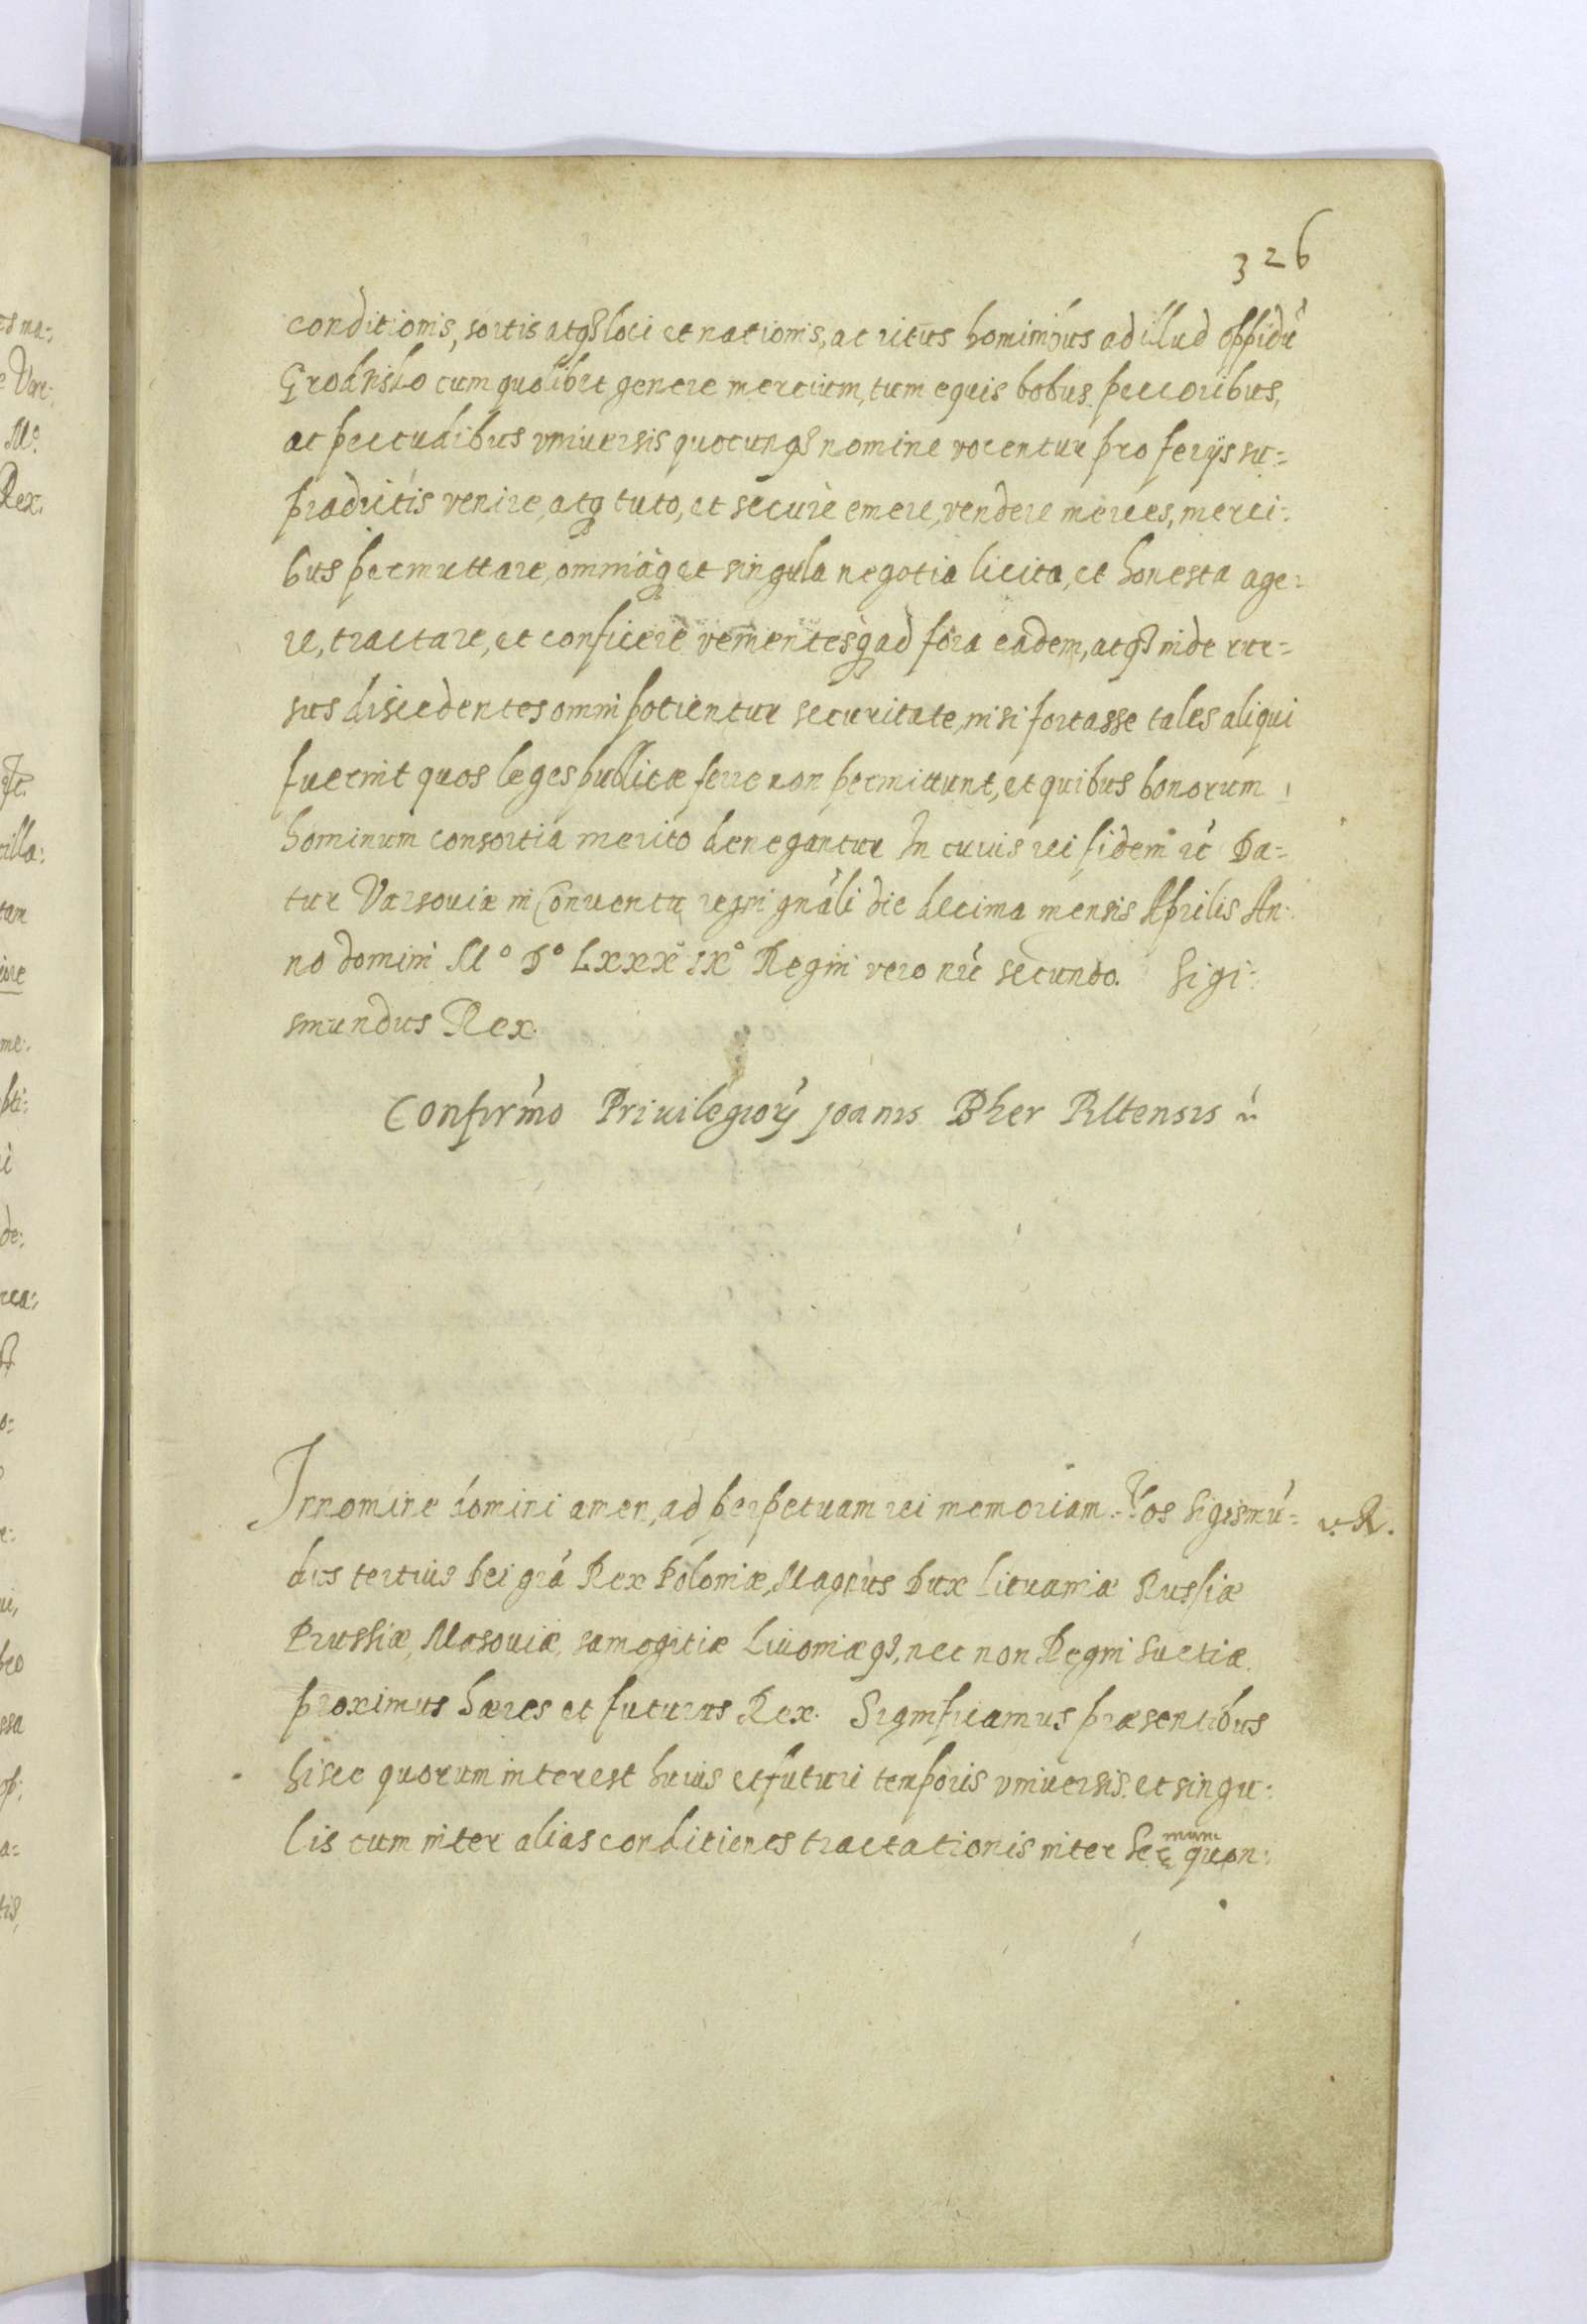 326
conditionis, sortis atq₃ loci et nationis, ac ritus hominibus ad illud oppidū
Grodnisko cum quolibet genere mercium, tum equis bobus pecoribus,
ac pecudibus vniuersis quocunq₃ nomine vocentur pro ferijs su=
pradictis venire, atq tuto, et secure emere, vendere merces, merci:
bus permuttare, omniaq et singula negotia licita, et honesta age:
re, tractare, et conficere venientesq ad fora eadem, atq₃ inde rur=
sus discedentes omni potientur securitate, nisi fortasse tales aliqui
fuerint quos leges publicæ ferre non permittunt, et quibus bonorum
hominum consortia merito denegantur In cuius rei fidem etc̄ Da=
tur Varsouiæ in Conuentu regni gnāli die decima mensis Aprilis An:
no domini M° D° LXXX° IX° Regni vero nri̅ secundo. Sigi:
smundus Rex.
Confirmō Priuilegiorū Joanis Bher Piltensis
In nomine domini amen, ad perpetuam rei memoriam. Nos Sigismū=
v. R.
dus tertius Dei grā Rex Poloniæ, Magnus Dux Lituaniæ Russiæ
Prussiæ, Masouiæ, samogitiæ Liuoniæq₃, nec non Regni Suetiæ
proximus hæres et futurus Rex. Significamus præsentibus
hisce quorum interest huius et futuri temporis vniuersis. et singu:
lis cum inter alias conditiones tractationis inter Se͞r̄mum quon: